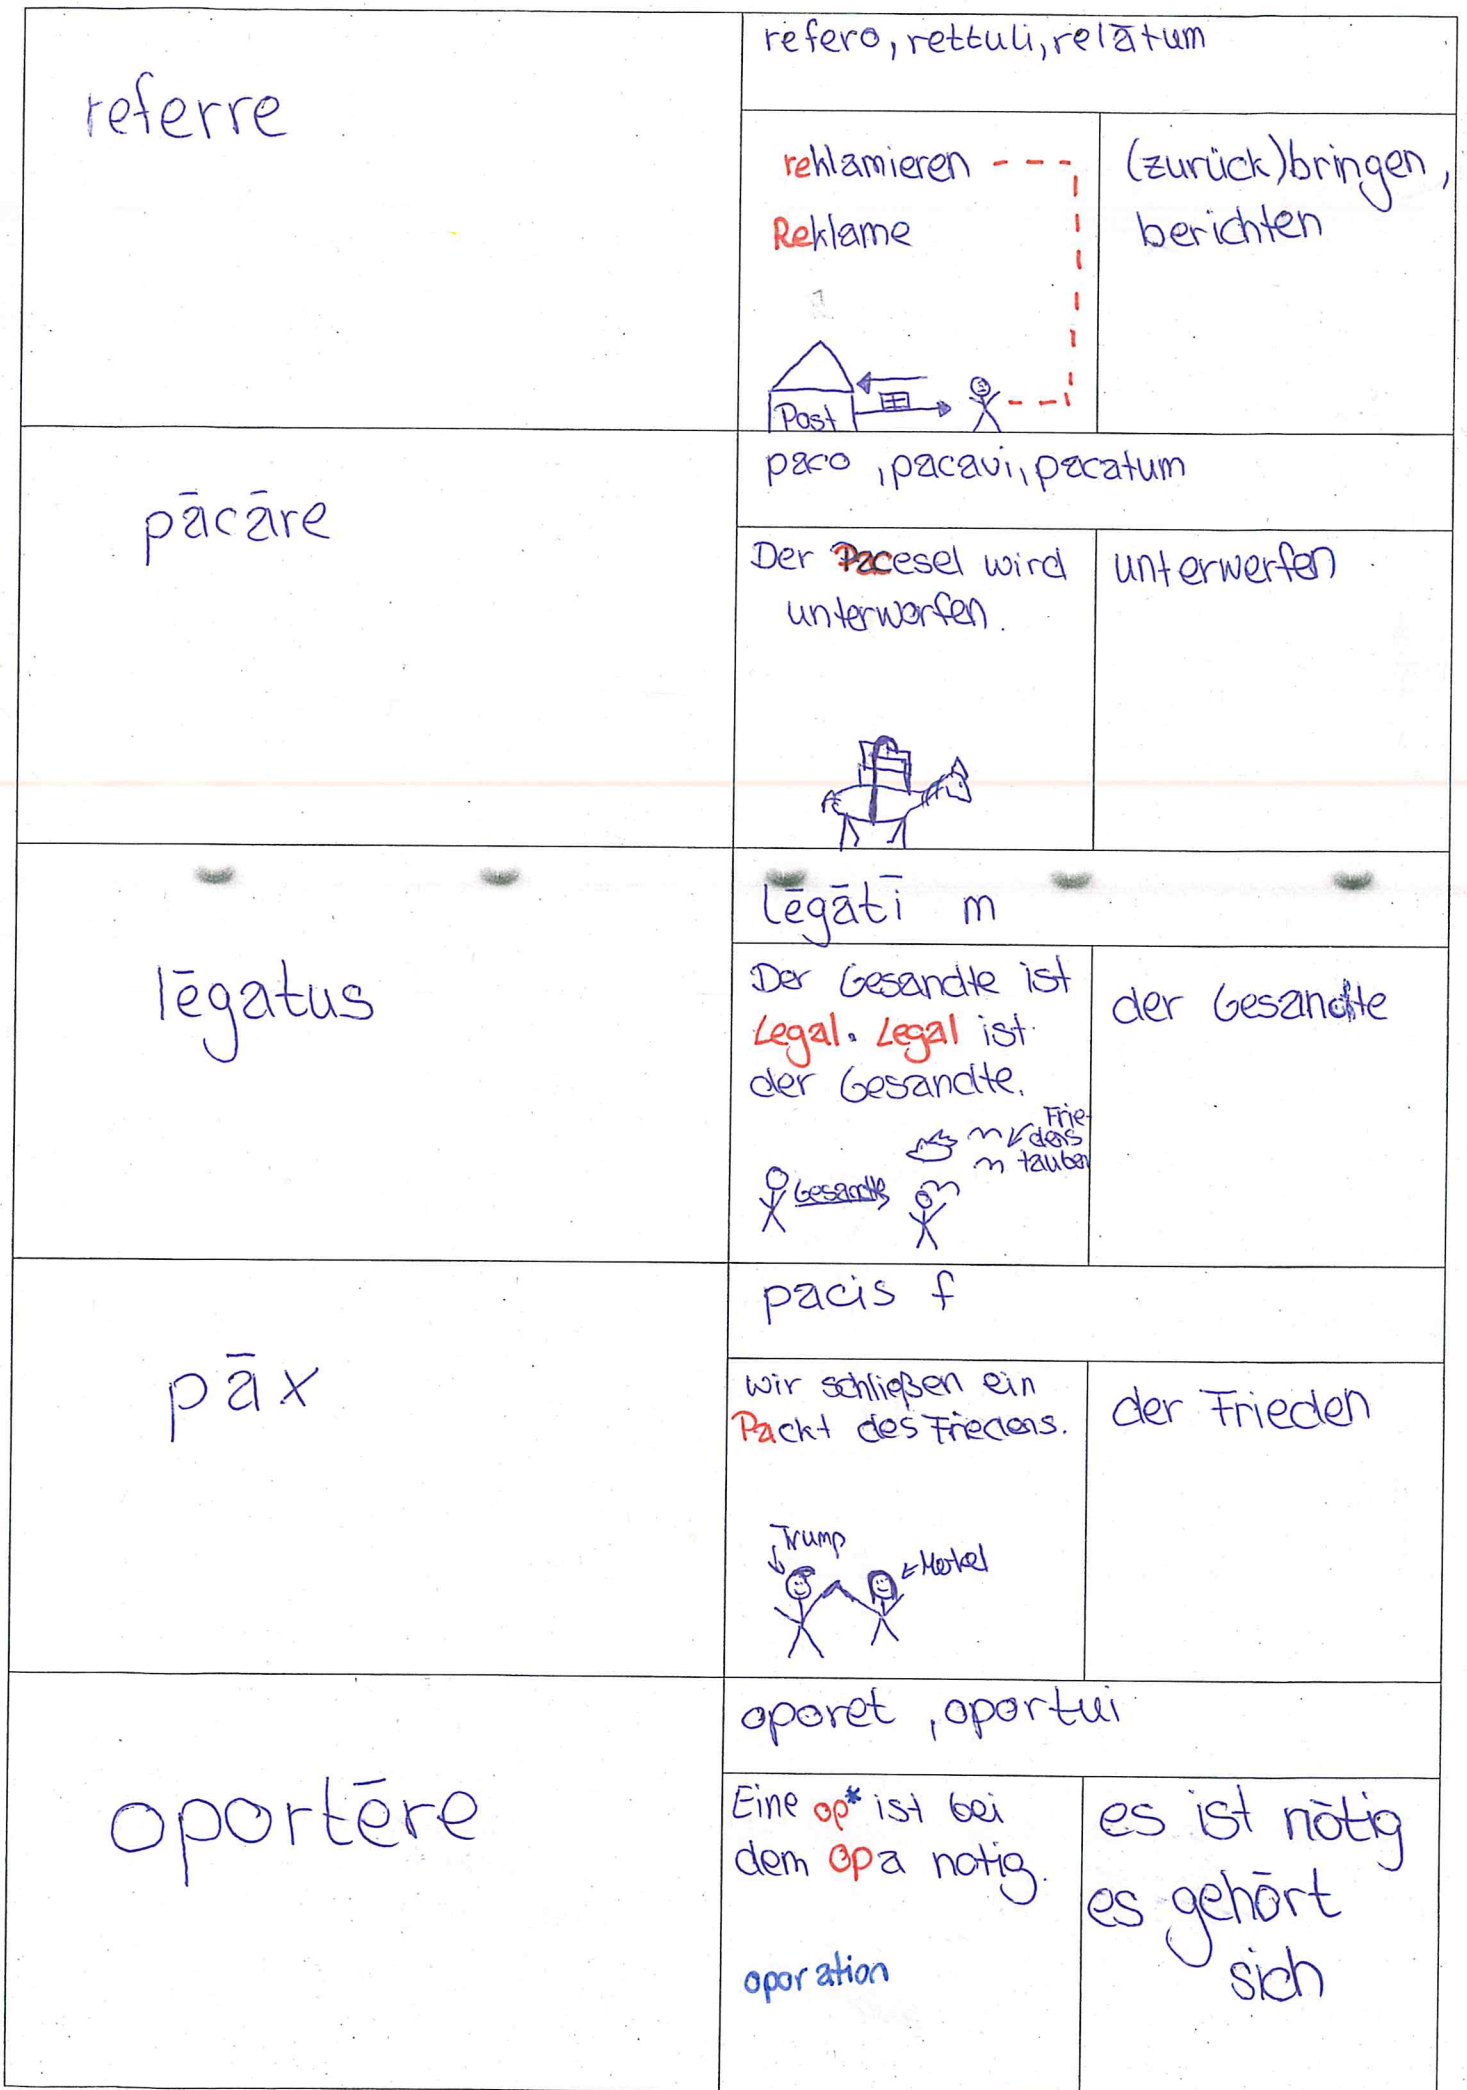 referre
refero, rettuli, relātum
reklamieren
Reklame
Post
(zurück)bringen,
berichten
pācāre
paco, pacavi, pacatum
Der Pacesel wird
unterworfen.
unterwerfen
lēgatus
lēgātī m
Der Gesandte ist
Legal. Legal ist
der Gesandte.
Frie-
dens
tauben
Gesandte
der Gesandte
pāx
pacis f
wir schließen ein
Packt des Friedens.
Trump
Merkel
der Frieden
oportēre
oporet, oportui
Eine op* ist bei
dem Opa notig.
oporation
es ist nötig
es gehört
sich